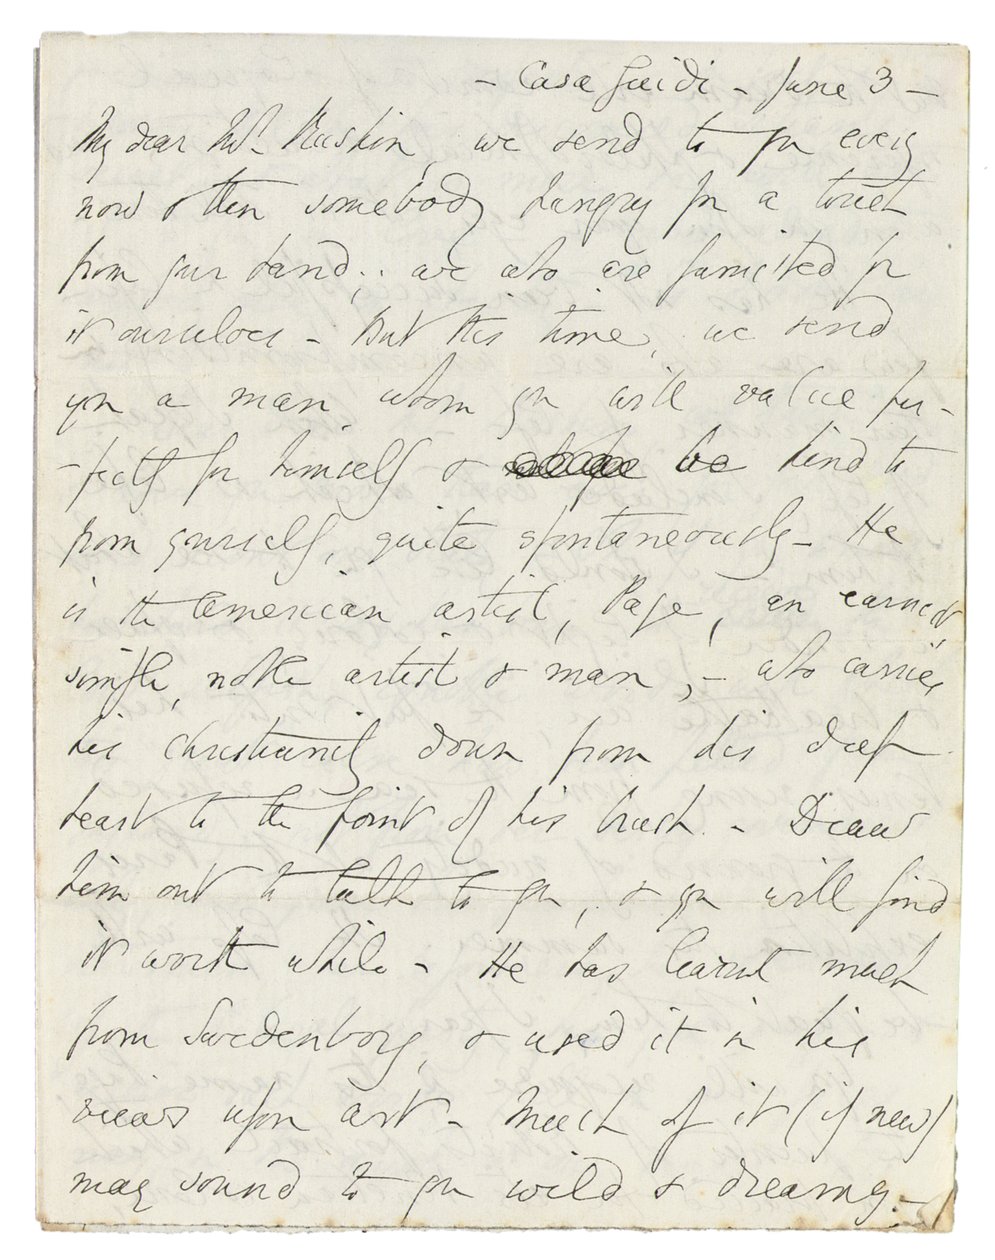 - Casa Guidi - June 3 -
My dear Mr. Ruskin, we send to you every
now & then somebody hungry for a touch
from your hand; who also are famished for
it ourselves - But this time, we send
you a man whom you will value per-
-fectly for himself & be kind to
from yourself, quite spontaneously - He
is the American artist, Page, an earnest,
simple, noble artist & man, - who carries
his Christianity down from his deep
heart to the point of his brush. - Draw
him out to talk to you, & you will find
it worth while - He has learnt much
from Swedenborg, & used it in his
views upon art - Much of it (if new)
may sound to you wild & dreamy -